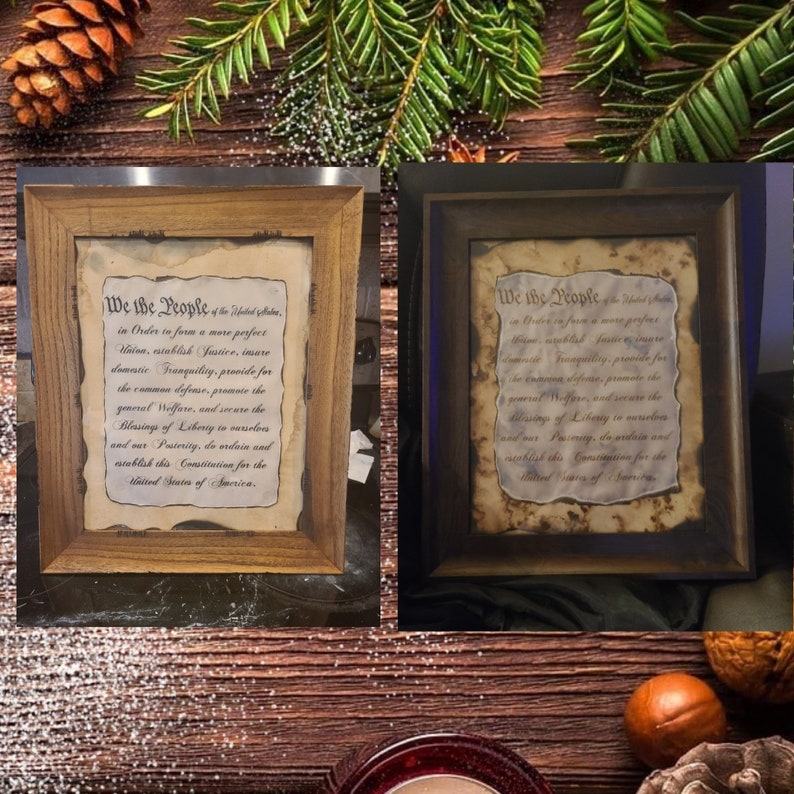 We the People of the United States,
in Order to form a more perfect
Union, establish Justice, insure
domestic Tranquility, provide for
the common defense, promote the
general Welfare, and secure the
Blessings of Liberty to ourselves
and our Posterity, do ordain and
establish this Constitution for the
United States of America.
We the People of the United States,
in Order to form a more perfect
Union, establish Justice, insure
domestic Tranquility, provide for
the common defense, promote the
general Welfare, and secure the
Blessings of Liberty to ourselves
and our Posterity, do ordain and
establish this Constitution for the
United States of America.